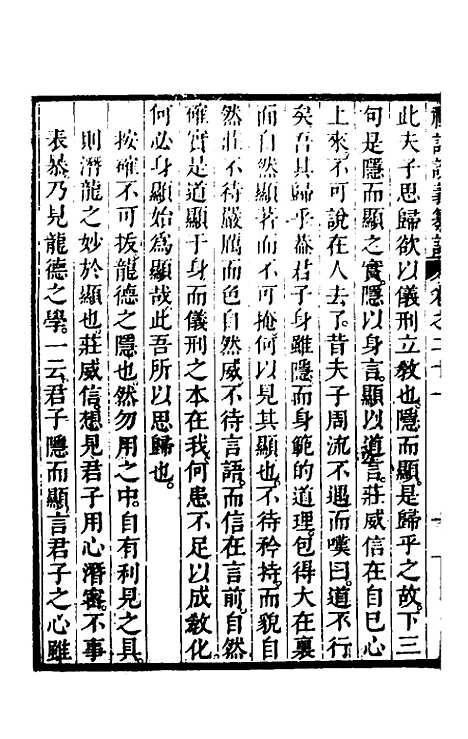 此夫子思歸欲以儀刑立敎也隱而顯是歸乎之故下三
句是隱而顯之實隱以身言顯以道言莊威信在自己心
上來不可說在人去了昔夫子周流不遇而嘆曰道不行
矣吾其歸乎葢君子身雖隱而身範的道理包得大在裏
而自然顯著而不可掩何以見其顯也不待矜持而貌自
然莊不待嚴厲而色自然威不待言語而信在言前自然
確實是道顯于身而儀刑之本在我何患不足以成敎化
何必身顯始為顯哉此吾所以思歸也
按確不可拔龍德之隱也然勿用之中自有利見之具
則潛龍之妙於顯也莊威信想見君子用心潛密不事
表㬥乃見龍德之學一云君子隱而顯言君子之心雖